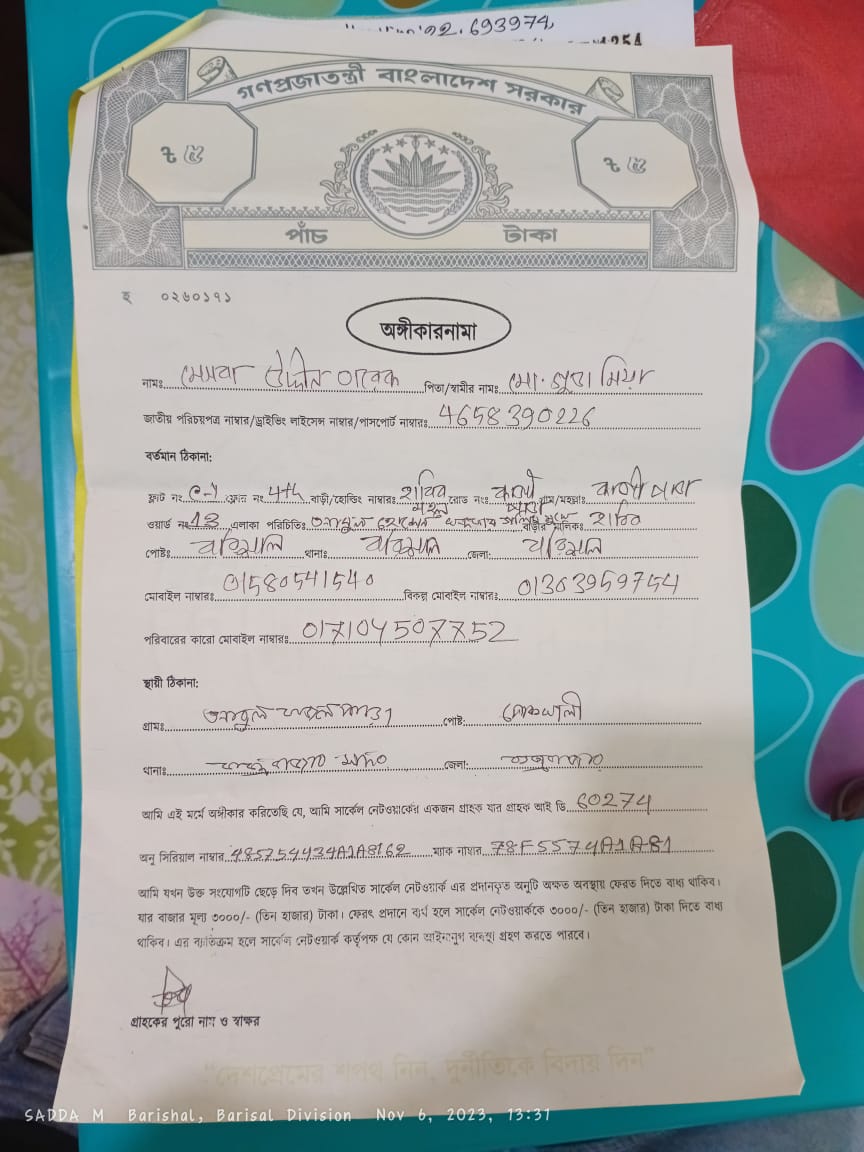 02.693974
গণপ্রজাতন্ত্রী বাংলাদেশ সরকার
৳ ৫ ৳ ৫
পাঁচ টাকা
হ ০২৬০১৭১
অঙ্গীকারনামা
নামঃ উদ্দীন তারেক পিতা/স্বামীর নামঃ মো. মিয়া
জাতীয় পরিচয়পত্র নাম্বার/ড্রাইভিং লাইসেন্স নাম্বার/পাসপোর্ট নাম্বারঃ 4658390226
বর্তমান ঠিকানা:
ফ্লাট নং ফ্লোর নং 4th বাড়ী/হোল্ডিং নাম্বারঃ রোড নং গ্রাম/মহল্লাঃ
ওয়ার্ড নং 13 এলাকা পরিচিতিঃ বাড়ীর মালিকঃ
পোষ্টঃ বরিশাল থানাঃ বরিশাল জেলা: বরিশাল
মোবাইল নাম্বারঃ 01580541540 বিকল্প মোবাইল নাম্বারঃ 01303959754
পরিবারের কারো মোবাইল নাম্বারঃ 017104507752
স্থায়ী ঠিকানা:
গ্রামঃ পোষ্ট:
থানাঃ জেলা:
আমি এই মর্মে অঙ্গীকার করিতেছি যে, আমি সার্কেল নেটওয়ার্কের একজন গ্রাহক যার গ্রাহক আই ডি 60274
অনু সিরিয়াল নাম্বার 485754434A1A8162 ম্যাক নাম্বার 78F5574A1A81
আমি যখন উক্ত সংযোগটি ছেড়ে দিব তখন উল্লেখিত সার্কেল নেটওয়ার্ক এর প্রদানকৃত অনুটি অক্ষত অবস্থায় ফেরত দিতে বাধ্য থাকিব।
যার বাজার মূল্য ৩০০০/- (তিন হাজার) টাকা। ফেরৎ প্রদানে ব্যর্থ হলে সার্কেল নেটওয়ার্ককে ৩০০০/- (তিন হাজার) টাকা দিতে বাধ্য
থাকিব। এর ব্যতিক্রম হলে সার্কেল নেটওয়ার্ক কর্তৃপক্ষ যে কোন আইনানুগ ব্যবস্থা গ্রহণ করতে পারবে।
গ্রাহকের পুরো নাম ও স্বাক্ষর
"দেশপ্রেমের শপথ নিন, দুর্নীতিকে বিদায় দিন"
SADDA M Barishal, Barisal Division Nov 6, 2023, 13:31